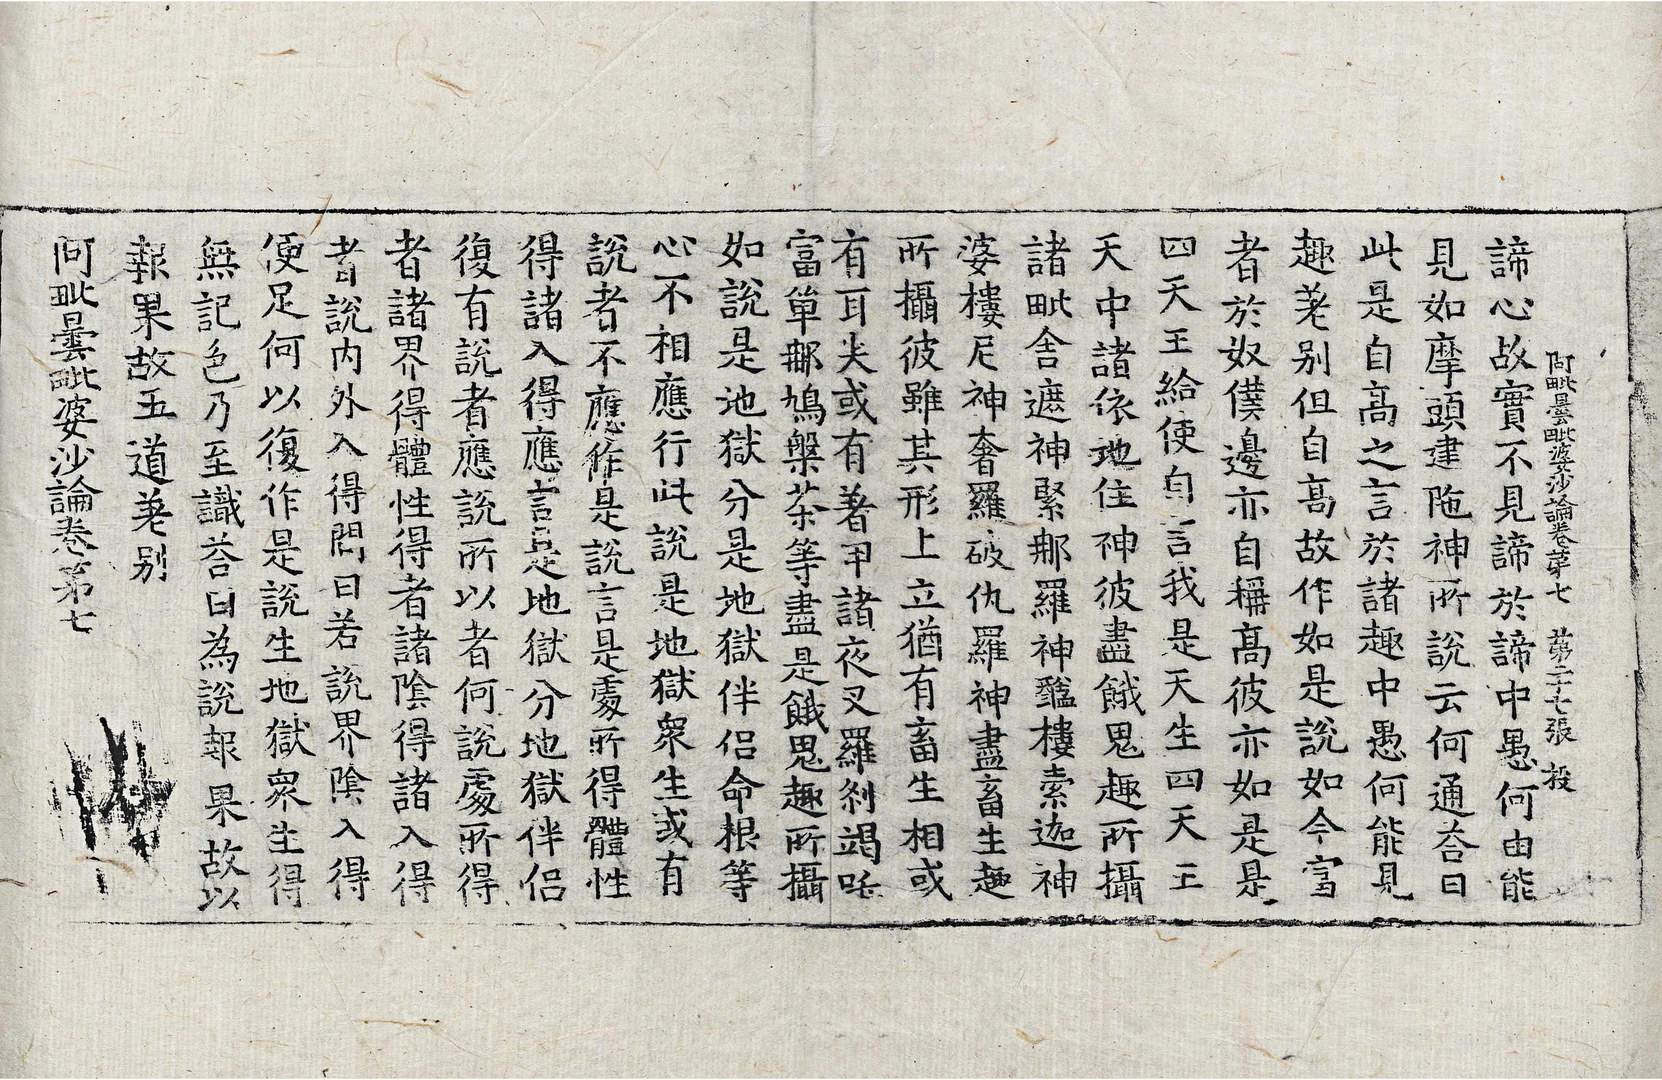 阿毗曇毗婆沙論卷第七　第二十七張　投
諦心故實不見諦於諦中愚何由能
見如摩頭建陁神所說云何通荅曰
此是自高之言於諸趣中愚何能見
趣差别但自高故作如是說如今富
者於奴僕邊亦自稱高彼亦如是是
四天王給使自言我是天生四天王
天中諸依地住神彼盡餓鬼趣所攝
諸毗舍遮神緊那羅神醯樓索迦神
婆樓尼神奢羅破仇羅神盡畜生趣
所攝彼雖其形上立猶有畜生相或
有耳尖或有著甲諸夜叉羅剎竭吒
富單那鳩槃茶等盡是餓鬼趣所攝
如說是地獄分是地獄伴侶命根等
心不相應行此說是地獄衆生或有
說者不應作是說言是處所得體性
得諸入得應言是地獄分地獄伴侶
復有說者應說所以者何說處所得
者諸界得體性得者諸陰得諸入得
者說内外入得問曰若說界陰入得
便足何以復作是說生地獄衆生得
無記色乃至識荅曰為說報果故以
報果故五道差别
阿毗曇毗婆沙論卷第七